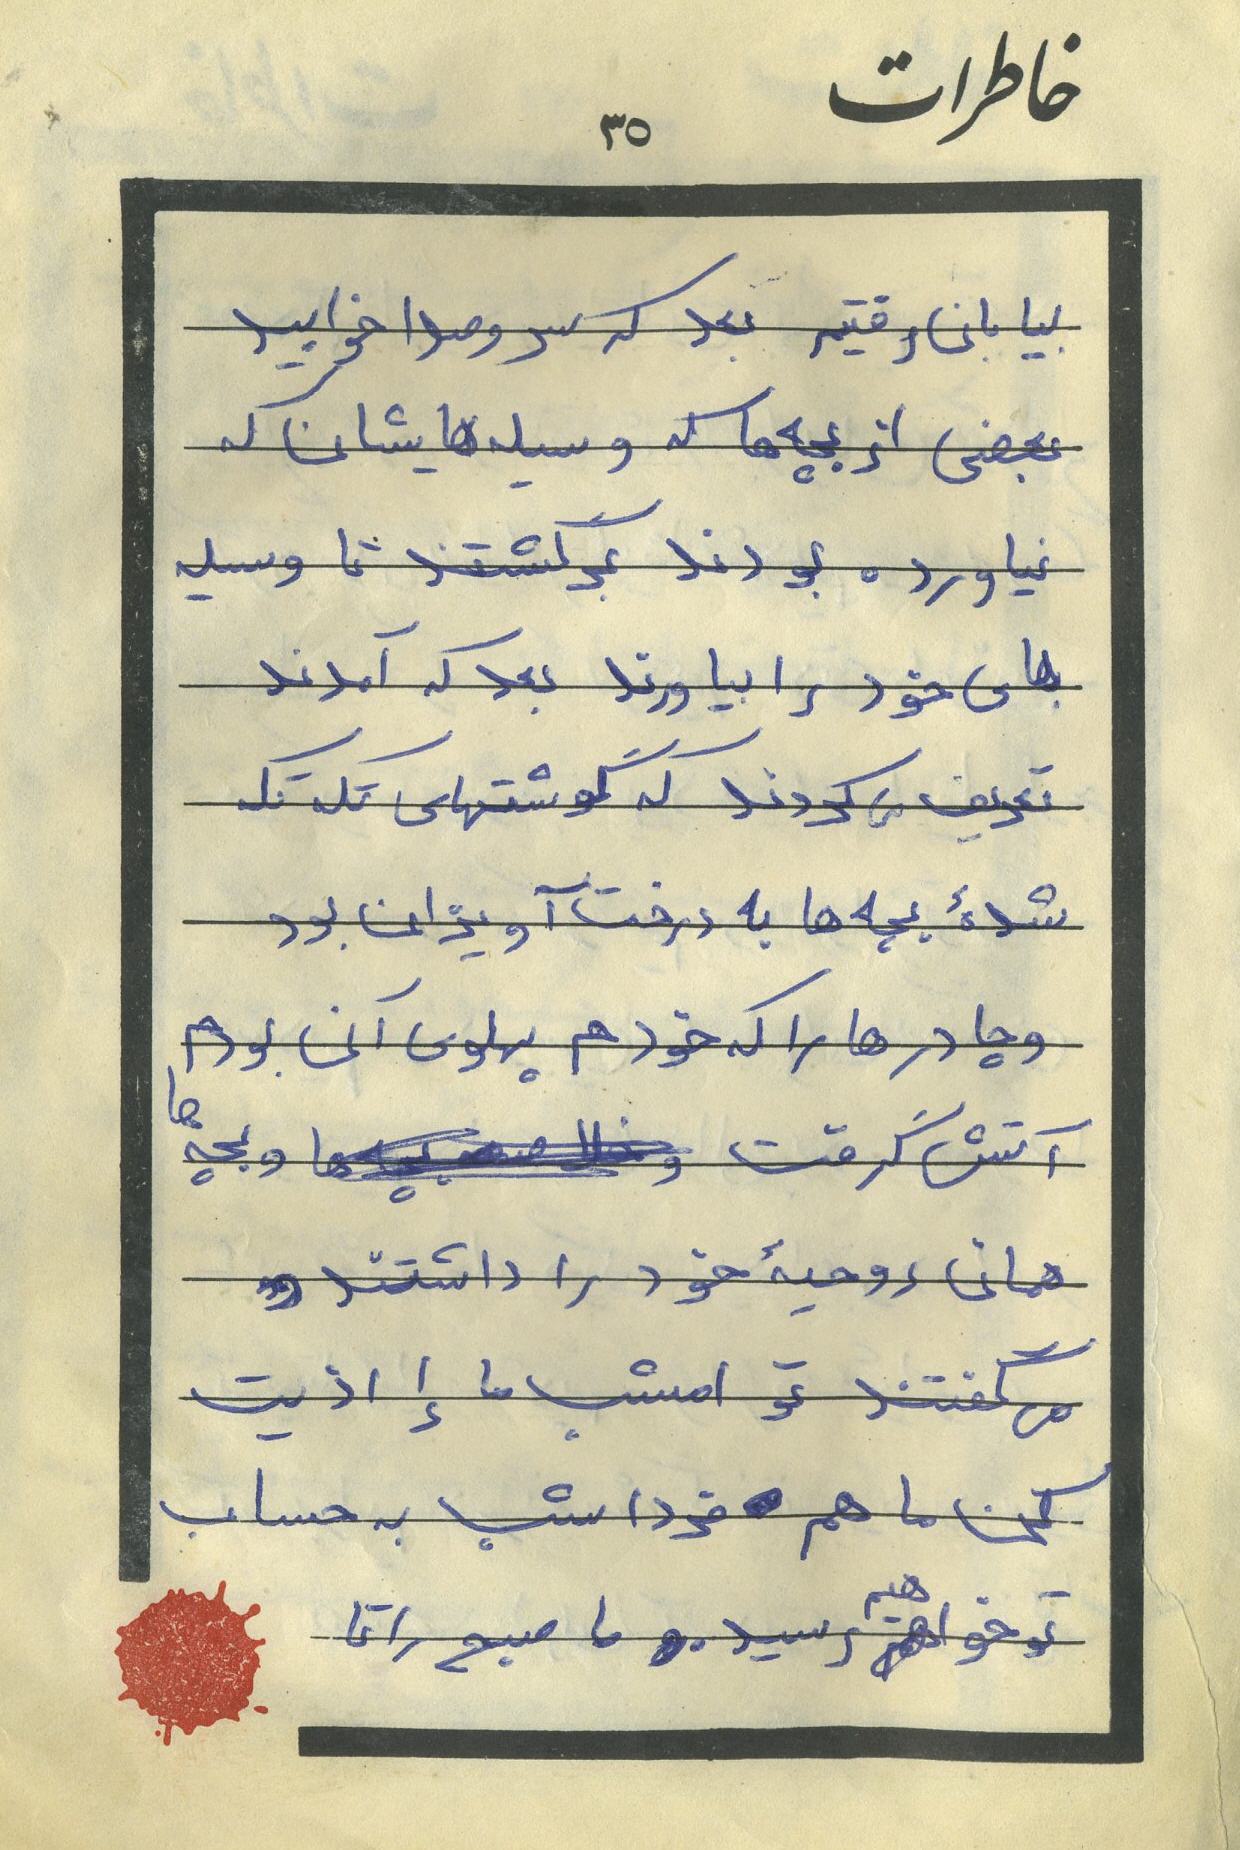 خاطرات
۳۵
بیابان رفتیم بعد که سر و صدا خوابید
بعضی از بچه ها که وسیله هایشان که
نیاورده بودند برگشتند تا وسیله
های خود را بیاورند بعد که آمدند
تعریف می کردند که گوشتهای تکه تکه
شدهٔ بچه ها به درخت آویزان بود
و چادرها را که خودم پهلوی آن بودم
آتش گرفت و ها و بچه ها
همان روحیهٔ خود را داشتند و
می گفتند تو امشب ما را اذیت
کن ما هم فردا شب به حساب
تو خواهیم رسید و ما صبح را تا